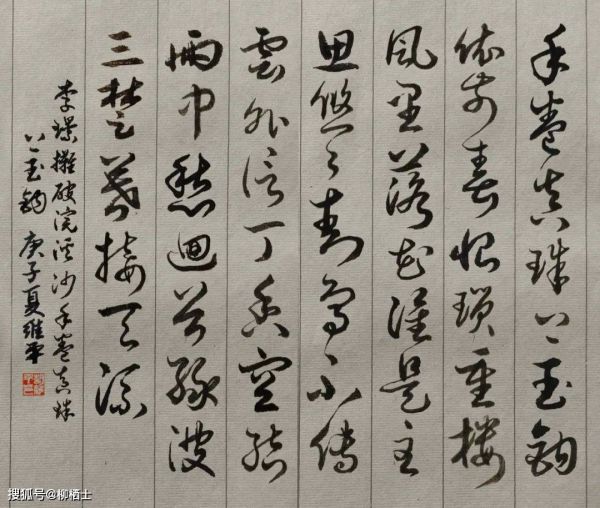 手卷真珠上玉鈎
依前春恨鎖重樓
風里落花誰是主
思悠々青鳥不傳
雲外信丁香空結
雨中愁迴首緑波
三楚暮接天流
李璟攤破浣溪沙手卷真珠
上玉鈎 庚子夏維平
搜狐号@柳栖士